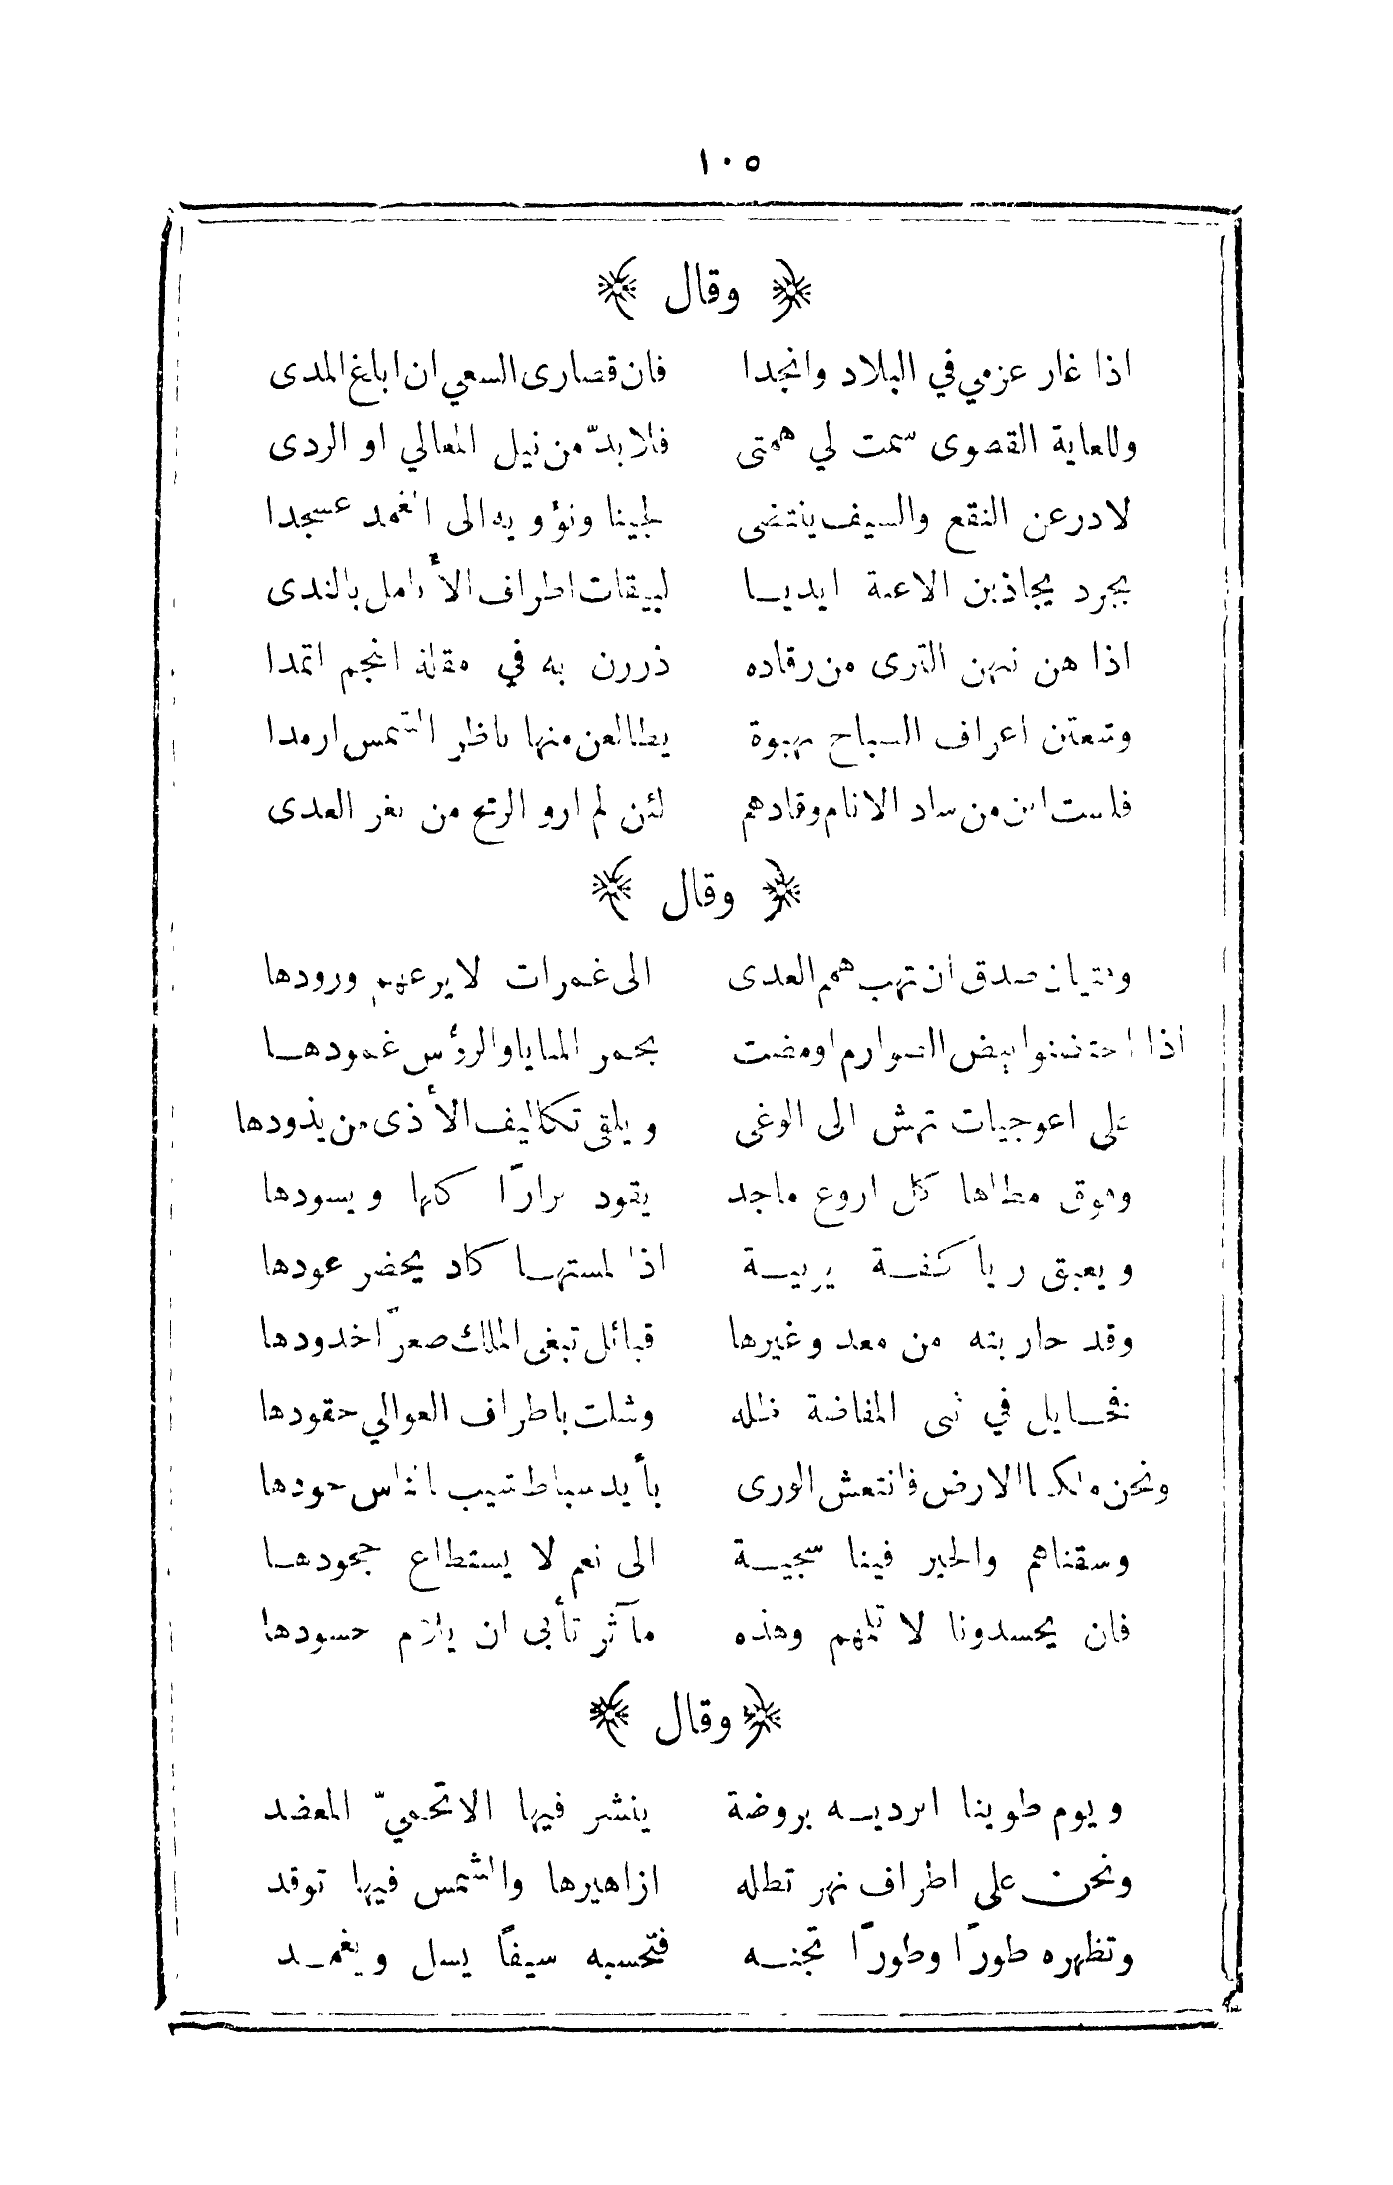 ١٠٥
وقال
اذا غار عزمي في البلاد وانجدا فان قصارى السعي ان ابلغ المدى
وللغاية القصوى سمت لي همتى فلا بدّ من نيل المعالي او الردى
لادرعن النقع والسيف ينتضى لجينا ونؤويه الى الغمد عسجدا
بجرد يجاذبن الاعنة ايديا لبيقات اطراف الأنامل بالندى
اذا هن نبهن الثرى من رقاده ذررن به في مقلة انجم اثمدا
اعراف الصباح بهبوة يطالعن منها ناظر الشمس ارمدا
فلست ابن من ساد الانام وقادهم لئن لم ارو الرمح من ثغر العدى
وقال
وفتيان صدق ان تهب همم العدى الى غمرات لا يرعهم ورودها
اذا احتضنوا بيض الصوارم اومضت بحمر المنايا والرؤس غمودها
على اعوجيات تهش الى الوغى ويلقى تكاليف الأذى من يذودها
وفوق مطاها كل اروع ماجد يقود نزارًا كلها ويسودها
ويعبق ريا كفة يربية اذا لمستها كاد يخضر عودها
وقد حاربته من معد وغيرها قبائل تبغى الملك صعرّا خدودها
في ثنى المفاضة وشلت باطراف العوالي حقودها
ونحن ملكنا الارض فانتعش الورى بأيد سباط تتيب الناس جودها
وسقناهم والخير فينا سجية الى نعم لا يستطاع جحودها
فان يحسدونا لا نلمهم وهذه مآثر تأبى ان يلام حسودها
وقال
ويوم طوينا ابرديه بروضة ينشر فيها الاتحميّ المعضد
ونحن على اطراف نهر تظله ازاهيرها والشمس فيها توقد
وتظهره طورًا وطورًا تجنه فتحسبه سيفًا يسل ويغمد